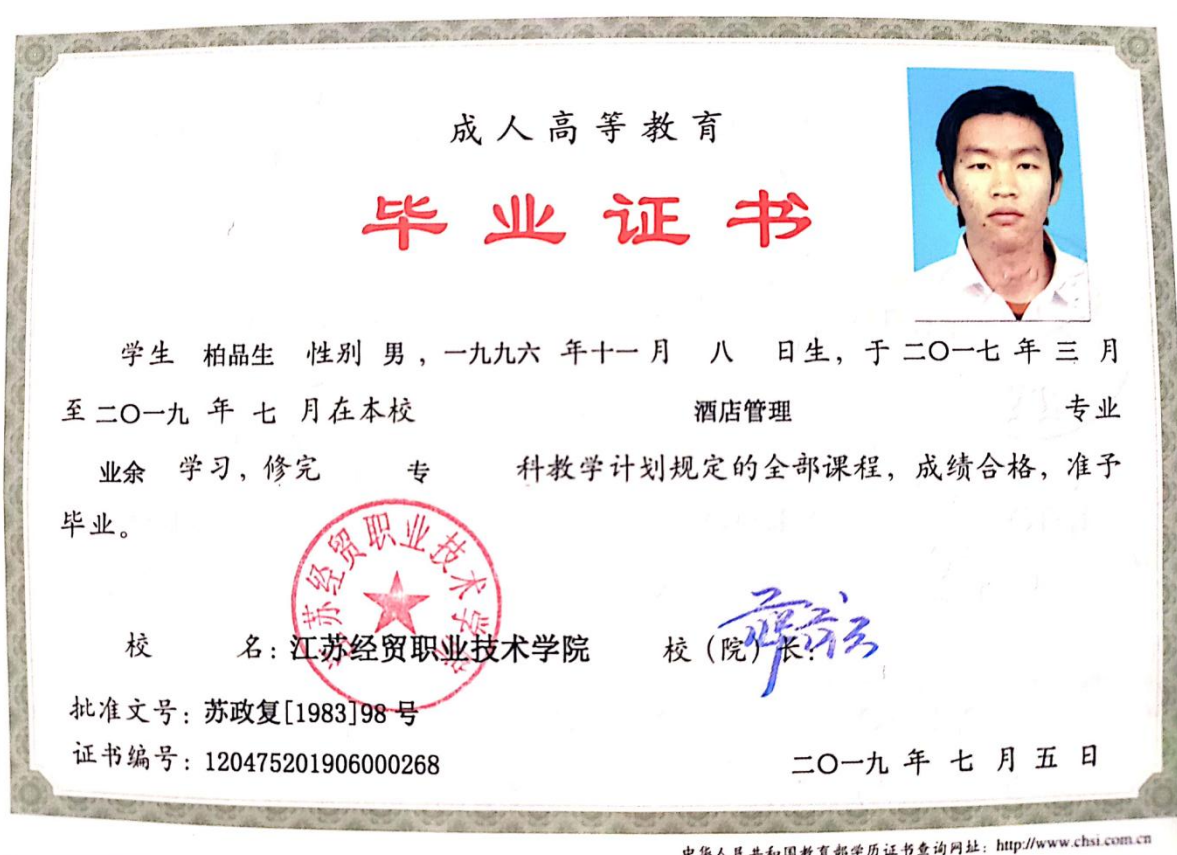 成人高等教育
毕业证书
学生 柏品生 性别 男，一九九六 年十一月 八 日生，于 二〇一七 年 三 月
至 二〇一九 年 七 月在本校 酒店管理 专业
业余 学习，修完 专 科教学计划规定的全部课程，成绩合格，准予
毕业。
江苏经贸职业技术学院
校 名：江苏经贸职业技术学院 校（院）长：
批准文号：苏政复[1983]98 号
证书编号：120475201906000268 二〇一九 年 七 月 五 日
中华人民共和国教育部学历证书查询网址：http://www.chsi.com.cn